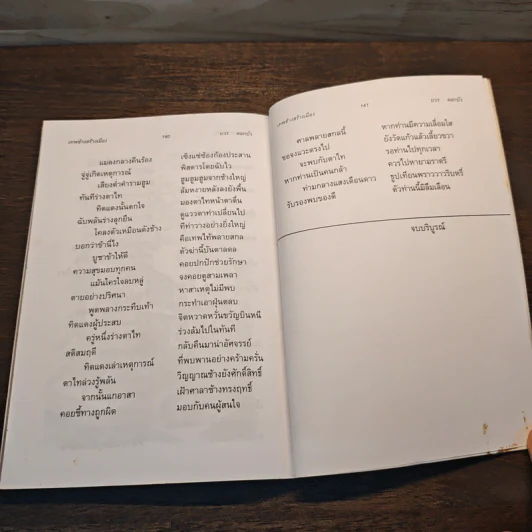 เทพช้างสร้างเมือง ๑๒๐ ถวร ดอกบัว
แมลงกลางคืนร้อง เซ็งแซ่ซ้องก้องประสาน
จู่จู่เกิดเหตุการณ์ พิสดารโดยฉับไว
เสียงต่ำคำรามฮูม ฮูมฮูมฮูมจากช้างใหญ่
ทันทีร่างตาไท ล้มหงายหลังลงยังพื้น
ทิดแดงนั้นตกใจ มองตาไทหน้าตาตื่น
ฉับพลันร่างลุกยืน ดูแววตาท่าเปลี่ยนไป
โคลงตัวเหมือนดังช้าง ทีท่าวางอย่างยิ่งใหญ่
บอกว่าข้านี่ไง คือเทพไท้พลายสกล
บูชาข้าให้ดี ตัวข้านี้บันดาลดล
ความสุขมอบทุกคน คอยปกปักช่วยรักษา
แม้นใครใจลบหลู่ จงคอยดูสามเพลา
ตายอย่างปริศนา หาสาเหตุไม่มีพบ
พูดพลางกระทืบเท้า กระทำเอาฝุ่นตลบ
ทิดแดงผู้ประสบ จิตหวาดหวั่นขวัญบินหนี
ครู่หนึ่งร่างตาไท ร่วงล้มไปในทันที
สติสมฤดี กลับคืนมาน่าอัศจรรย์
ทิดแดงเล่าเหตุการณ์ ที่พบพานอย่างคร้ามครั่น
ตาไทล่วงรู้พลัน วิญญาณช้างยังศักดิ์สิทธิ์
จากนั้นแกอาสา เฝ้าศาลาช้างทรงฤทธิ์
คอยชี้ทางถูกผิด มอบกับคนผู้สนใจ
เทพช้างสร้างเมือง ๑๒๑ ถวร ดอกบัว
ศาลพลายสกลนี้ หากท่านมีความเลื่อมใส
ขอจงแวะตรงไป ยังวัดแก้วแล้วเลี้ยวขวา
จะพบกับตาไท รอท่านไปทุกเวลา
หากท่านเป็นคนกล้า ควรไปหายามราตรี
ท่ามกลางแสงเดือนดาว ธูปเทียนพราววาวริบหรี่
รับรองพบของดี ตัวท่านนี้มิลืมเลือน
จบบริบูรณ์